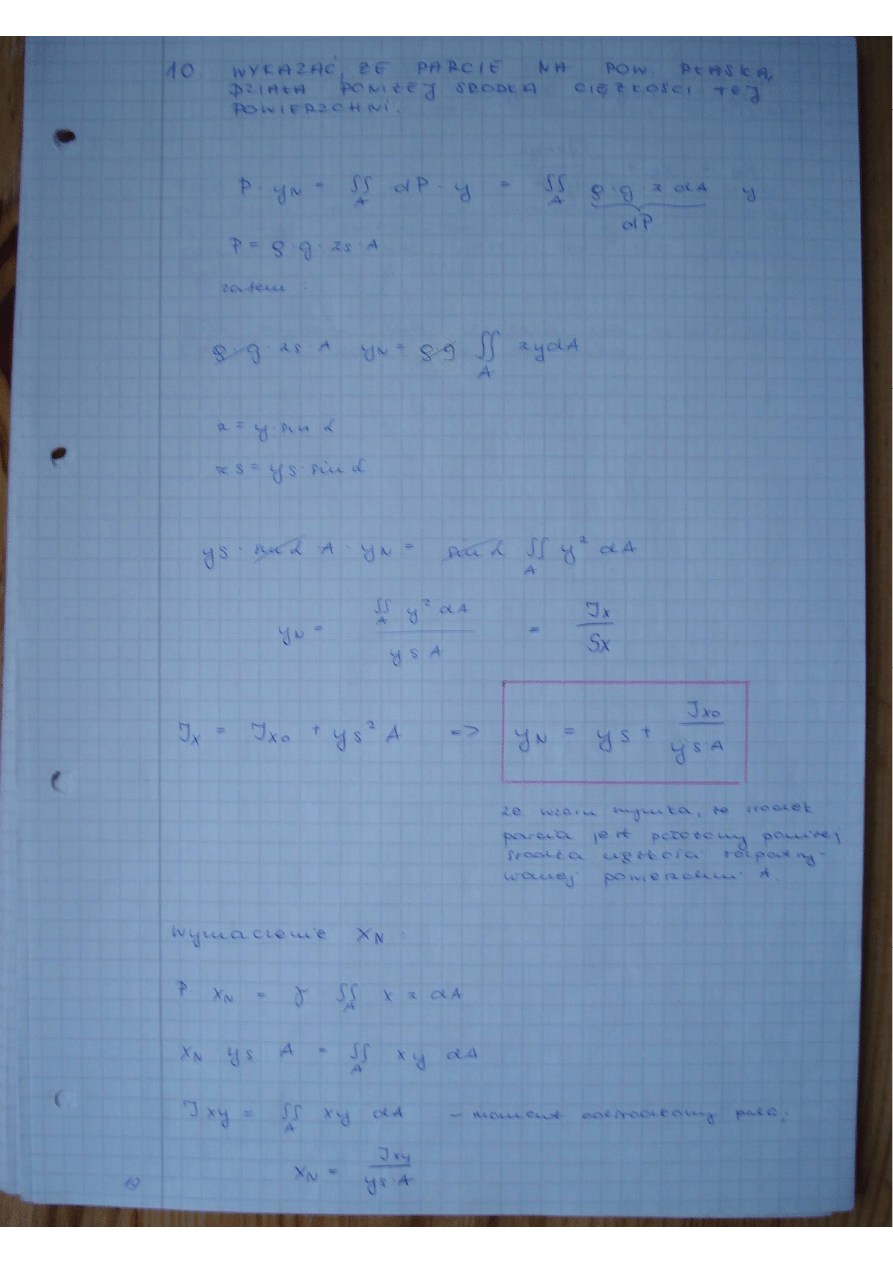 10. WYKAZAĆ, ŻE PARCIE NA POW. PŁASKĄ,
DZIAŁA PONIŻEJ ŚRODKA CIĘŻKOŚCI TEJ
POWIERZCHNI.
P · yN = ∬A dP · y = ∬A ρ · g · z dA y
dP
P = ρ · g · zs · A
zatem:
ρ · g · zs · A yN = ρg ∬A zy dA
z = y · sin α
zs = ys · sin α
ys · sin α A · yN = sin α ∬A y² dA
yN = ∬A y² dA / ys A = Jx / Sx
Jx = Jxo + ys² A => yN = ys + Jxo / ys · A
ze wzoru wynika, że środek
parcia jest położony poniżej
środka ciężkości rozpatry-
wanej powierzchni A.
Wyznaczenie XN:
P · XN = γ ∬A x z dA
XN ys A = ∬A xy dA
Jxy = ∬A xy dA – moment odśrodkowy
XN = Jxy / ys · A